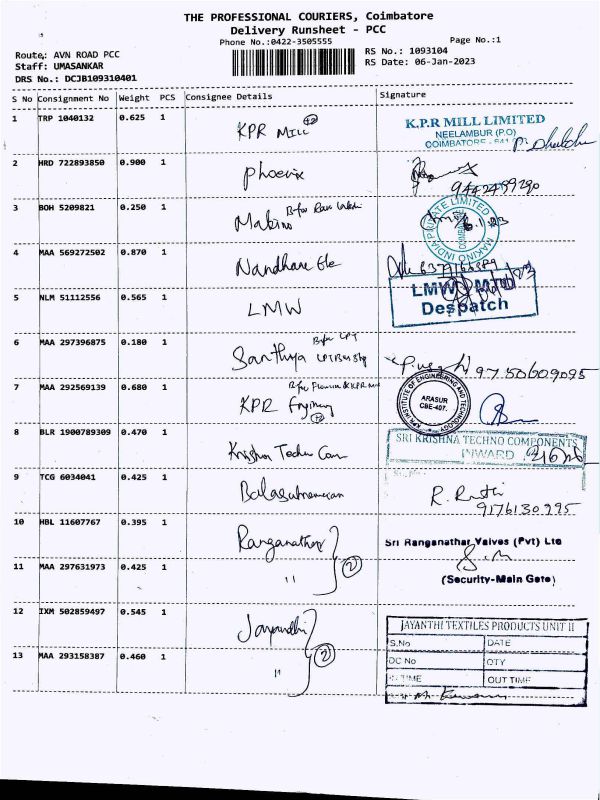 THE PROFESSIONAL COURIERS, Coimbatore
Delivery Runsheet - PCC
Phone No.:0422-3505555
Page No.:1
Route: AVN ROAD PCC
RS No.: 1093104
Staff: UMASANKAR
RS Date: 06-Jan-2023
DRS No.: DCJB109310401
S No Consignment No Weight PCS Consignee Details Signature
1 TRP 1040132 0.625 1 KPR Mill
K.P.R MILL LIMITED
NEELAMBUR (P.O)
COIMBATORE - 641
2 HRD 722893850 0.900 1 Phoenix
3 BOH 5209821 0.250 1 Makino
MAKINO INDIA PRIVATE LIMITED
4 MAA 569272502 0.870 1 Nandhare Ele
5 NLM 51112556 0.565 1 LMW
LMW
Despatch
6 MAA 297396875 0.180 1 Santhya
9750609095
7 MAA 292569139 0.680 1 KPR
KPR INSTITUTE OF ENGINEERING AND TECHNOLOGY
ARASUR
CBE-407.
8 BLR 1900789309 0.470 1 Krishna Techno Com
SRI KRISHNA TECHNO COMPONENTS
INWARD
9 TCG 6034041 0.425 1 Balasubramanian
R.
9176130995
10 HBL 11607767 0.395 1 Ranganathar
Sri Ranganathar Valves (Pvt) Ltd
11 MAA 297631973 0.425 1 " (2)
(Security-Main Gate)
12 IXM 502859497 0.545 1 Jayanthi
JAYANTHI TEXTILES PRODUCTS UNIT II
S.No DATE
13 MAA 293158387 0.460 1 " (2)
DC No QTY
IN TIME OUT TIME